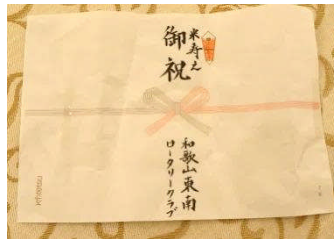 米寿え
御祝
和歌山東南
ロータリークラブ